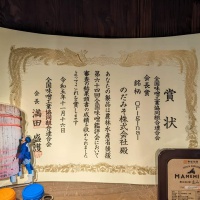 賞状
会長賞
銘柄 Original
のだみそ株式会社殿
あなたの製品は農林水産省後援
第六十四回全国味噌鑑評会において
審査の結果頭書の成績を収められました
よってこれを賞します
令和五年十一月十六日
全国味噌工業協同組合連合会
会長 満田盛護